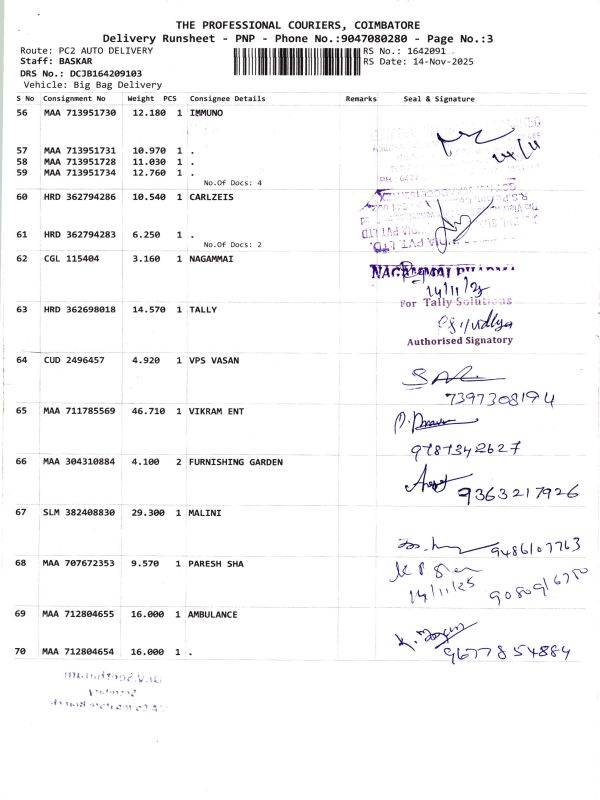 THE PROFESSIONAL COURIERS, COIMBATORE
Delivery Runsheet - PNP - Phone No.:9047080280 - Page No.:3
Route: PC2 AUTO DELIVERY RS No.: 1642091
Staff: BASKAR RS Date: 14-Nov-2025
DRS No.: DCJB164209103
Vehicle: Big Bag Delivery
S No Consignment No Weight PCS Consignee Details Remarks Seal & Signature
56 MAA 713951730 12.180 1 IMMUNO
14/11
57 MAA 713951731 10.970 1 .
58 MAA 713951728 11.030 1 .
59 MAA 713951734 12.760 1 .
No.Of Docs: 4
60 HRD 362794286 10.540 1 CARLZEIS
61 HRD 362794283 6.250 1 .
No.Of Docs: 2
62 CGL 115404 3.160 1 NAGAMMAI
14/11/25
63 HRD 362698018 14.570 1 TALLY
For Tally Solutions
Authorised Signatory
64 CUD 2496457 4.920 1 VPS VASAN
7397308194
65 MAA 711785569 46.710 1 VIKRAM ENT
9787342627
66 MAA 304310884 4.100 2 FURNISHING GARDEN
9363217926
67 SLM 382408830 29.300 1 MALINI
9486107763
68 MAA 707672353 9.570 1 PARESH SHA
14/11/25
69 MAA 712804655 16.000 1 AMBULANCE
70 MAA 712804654 16.000 1 .
9677854884